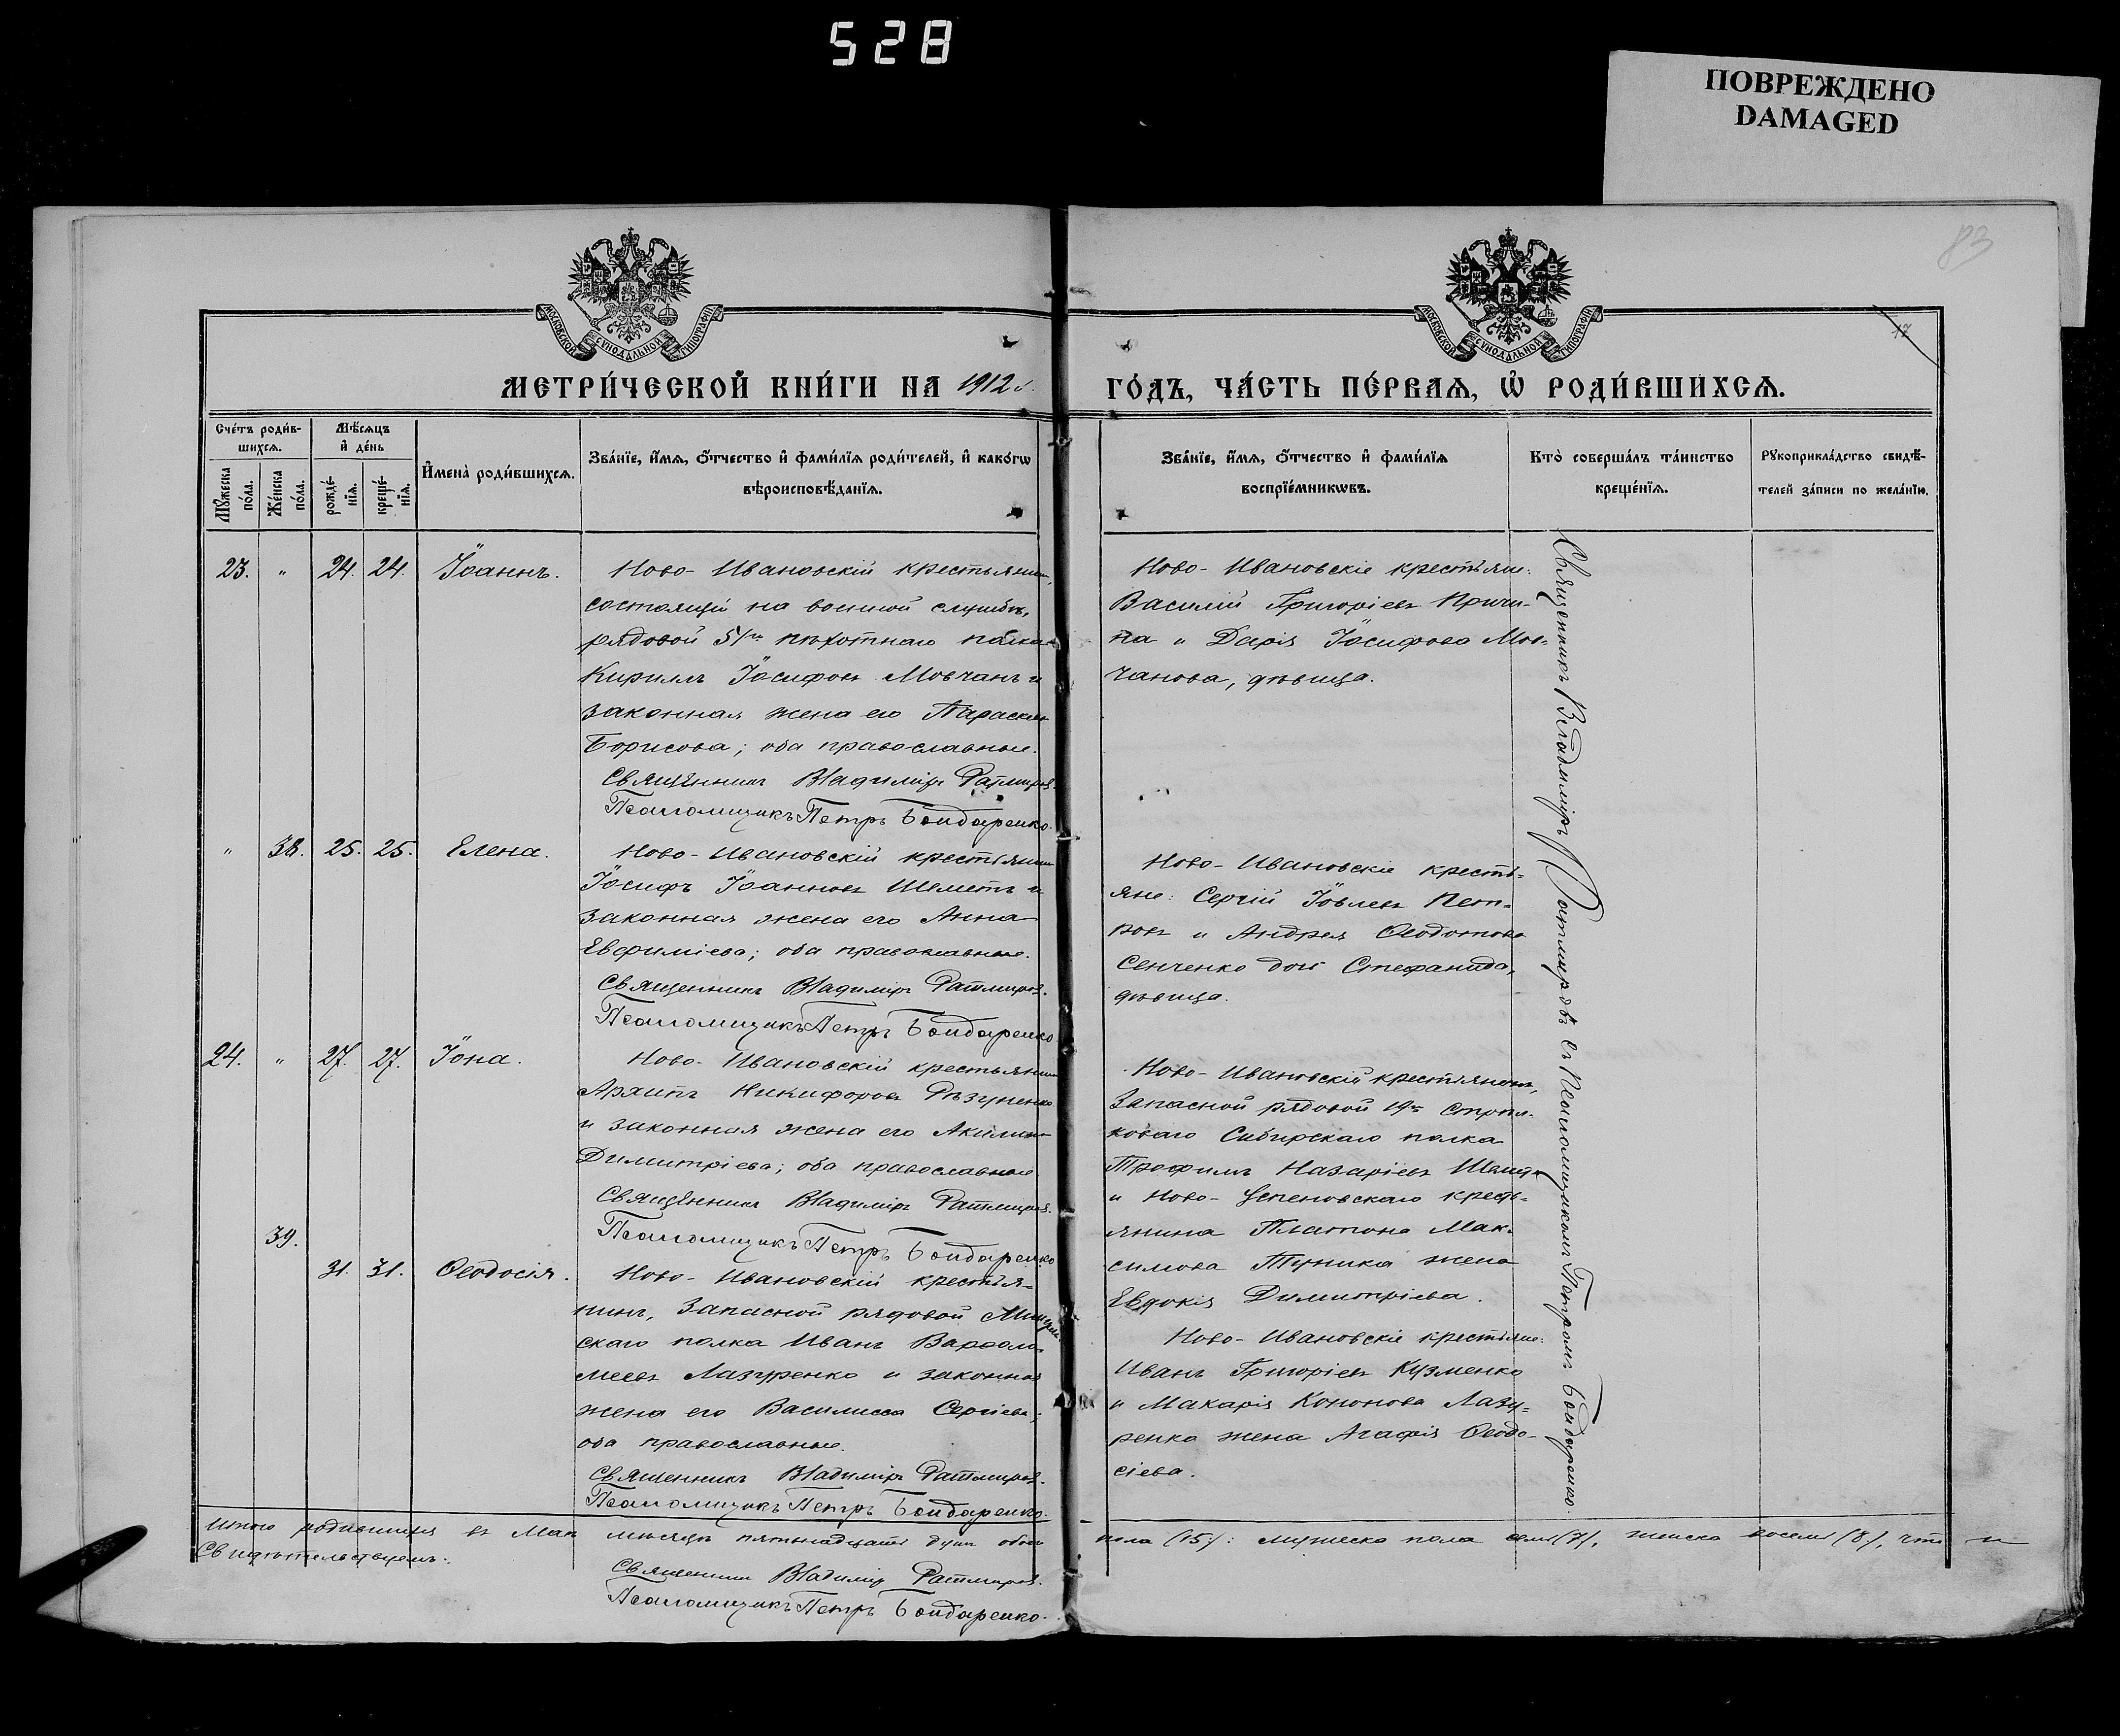 528
ПОВРЕЖДЕНО
DAMAGED
83
17
МОСКОВСКОЙ СѴНОДАЛЬНОЙ ТИПОГРАФІИ
МОСКОВСКОЙ СѴНОДАЛЬНОЙ ТИПОГРАФІИ
МЕТРИ́ЧЕСКОЙ КНИ́ГИ НА 1912 г.
ГО́ДЪ, ЧА́СТЬ ПЕ́РВАѦ, Ѡ҆ РОДИ́ВШИХСѦ.
Сче́тъ роди́в-
шихсѧ.
Мꙋ́жеска по́ла.
Же́нска по́ла.
Мѣ́сѧцъ
и҆ де́нь
рожде́-
нїѧ.
креще́-
нїѧ.
И҆мена̀ роди́вшихсѧ.
Зва́нїе, и҆́мѧ, ѻ҆́тчество и҆ фами́лїѧ роди́телей, и҆ како́гѡ
вѣроисповѣ́данїѧ.
Зва́нїе, и҆́мѧ, ѻ҆́тчество и҆ фами́лїѧ
воспрїе́мникѡвъ.
Кто̀ соверша́лъ та́инство
креще́нїѧ.
Рꙋкоприкла́дство свидѣ́-
телей за́писи по жела́нїю.
23. " 24. 24. Іоаннъ.
Ново-Ивановскій крестьянинъ,
состоящій на военной службѣ,
рядовой 51го пѣхотнаго полка
Кириллъ Іосифовъ Мовчанъ и
законная жена его Параскева
Борисова; оба православные.
Священникъ Владиміръ Ратмировъ.
Псаломщикъ Петръ Бондаренко.
Ново-Ивановскіе крестьяне:
Василій Григоріевъ Причи-
на и Дарія Іосифова Мов-
чанова, дѣвица.
" 38. 25. 25. Елена.
Ново-Ивановскій крестьянинъ
Іосифъ Іоанновъ Шеметъ и
законная жена его Анна
Евфиміева; оба православные.
Священникъ Владиміръ Ратмировъ.
Псаломщикъ Петръ Бондаренко
Ново-Ивановскіе кресть-
яне: Сергій Іовлевъ Пет-
ровъ и Андрея Ѳеодотова
Сенченко дочь Стефанида,
дѣвица.
24. " 27. 27. Іона.
Ново-Ивановскій крестьянинъ
Архипъ Никифоровъ Рѣзуненко
и законная жена его Акилина
Димитріева; оба православные
Священникъ Владиміръ Ратмировъ.
Псаломщикъ Петръ Бондаренко
Ново-Ивановскій крестьянинъ,
запасной рядовой 19го Стрѣл-
коваго Сибирскаго полка
Трофимъ Назаріевъ
и Ново-Успеновскаго кресть-
янина Платона Мак-
симова Туника жена
Евдокія Димитріева.
39.
31. 31. Ѳеодосія.
Ново-Ивановскій крестья-
нинъ, запасной рядовой
скаго полка Иванъ Варфоло-
меевъ Лазуренко и законная
жена его Василисса Сергіева;
оба православные.
Священникъ Владиміръ Ратмировъ.
Псаломщикъ Петръ Бондаренко.
Ново-Ивановскіе крестьяне:
Иванъ Григоріевъ Кузменко
и Макарія Кононова Лазу-
ренко жена Агафія Ѳеодо-
сіева.
Священникъ Владиміръ Ратмировъ съ Псаломщикомъ Петромъ Бондаренко.
Итого родившихся въ Маѣ мѣсяцѣ пятьнадцать душъ обоего пола (15): мужеска пола семь (7), женска восемь (8), что и
Свидѣтельствуемъ:
Священникъ Владиміръ Ратмировъ.
Псаломщикъ Петръ Бондаренко.